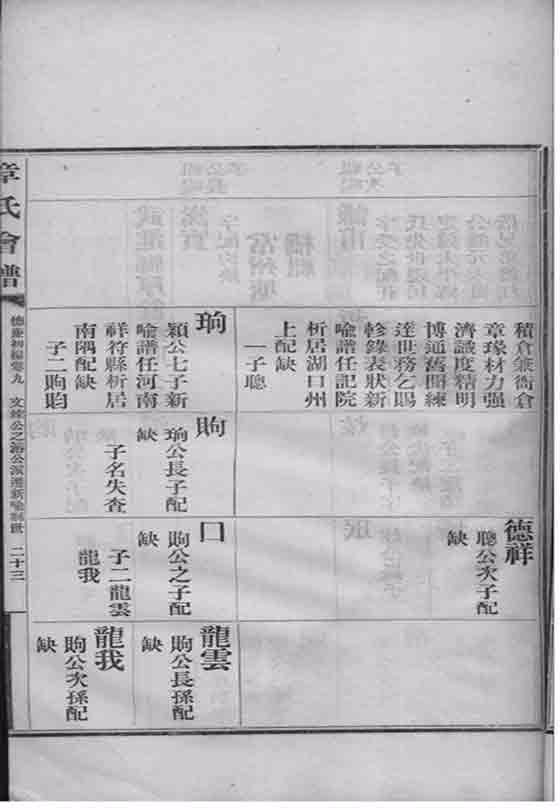 積倉兼衛倉
章瑑材力强
濟識度精明
博通舊聞練
達世務乞賜
軫錄表狀新
喻譜任記院
析居湖口州
上配缺
一子聰
珦
穎公七子新
喻譜任河南
祥符縣析居
南隅配缺
子二昫畇
昫
珦公長子配
缺
子名失查
德祥
聰公次子配
缺
口
昫公之子配
缺
子二龍雲
龍我
龍雲
昫公長孫配
缺
龍我
昫公次孫配
缺
章氏會譜
德慶初編卷九
二十三